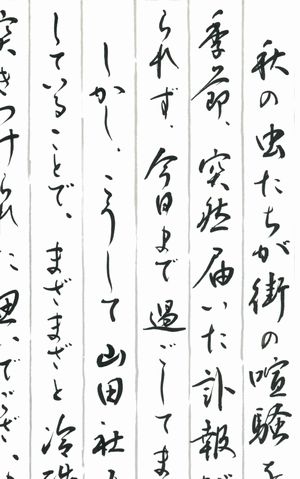 秋の虫たちが街の喧騒を
季節、突然届いた訃報が
られず、今日まで過ごしてま
しかし、こうして山田社
していることで、まざまざと冷
突きつけられた思いでござい